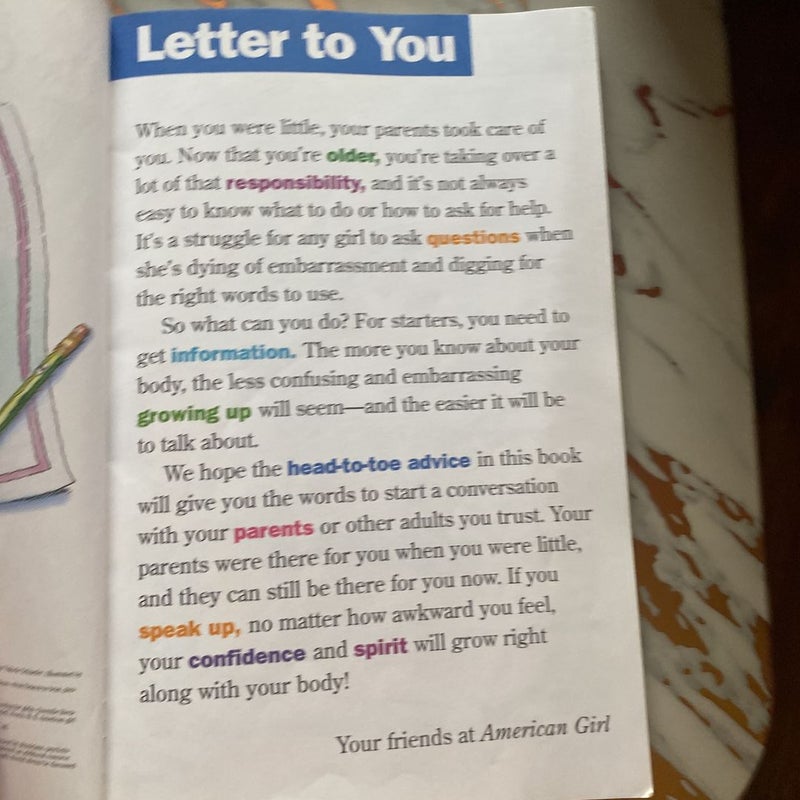 Letter to You
When you were little, your parents took care of
you. Now that you're older, you're taking over a
lot of that responsibility, and it's not always
easy to know what to do or how to ask for help.
It's a struggle for any girl to ask questions when
she's dying of embarrassment and digging for
the right words to use.
So what can you do? For starters, you need to
get information. The more you know about your
body, the less confusing and embarrassing
growing up will seem—and the easier it will be
to talk about.
We hope the head-to-toe advice in this book
will give you the words to start a conversation
with your parents or other adults you trust. Your
parents were there for you when you were little,
and they can still be there for you now. If you
speak up, no matter how awkward you feel,
your confidence and spirit will grow right
along with your body!
Your friends at American Girl